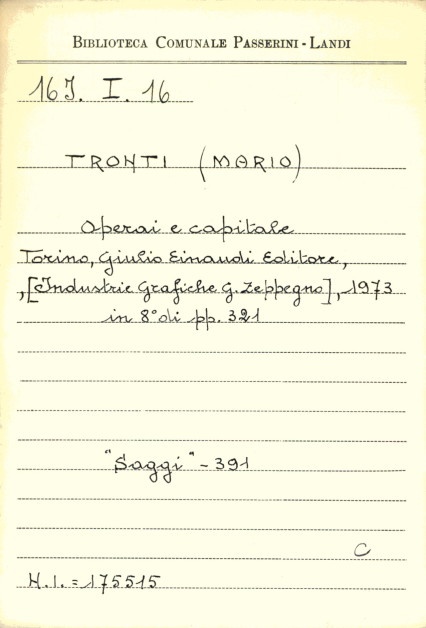 BIBLIOTECA COMUNALE PASSERINI - LANDI
16J. I. 16
TRONTI (MARIO)
Operai e capitale
Torino, Giulio Einaudi Editore,
,[Industrie Grafiche G. Zeppegno], 1973
in 8° di pp. 321
"Saggi" - 391
C
H.I. = 175515